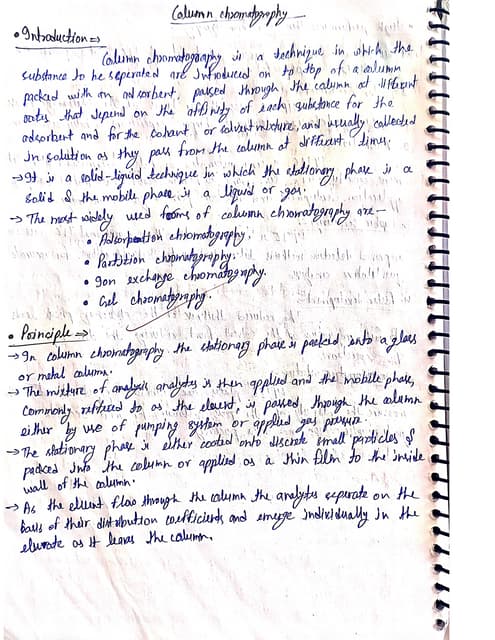 Column chromatography
• Introduction ⇒
Column chromatography is a technique in which the
substance to be seperated are introduced on to top of a column
packed with an adsorbent, passed through the column at different
rates that depend on the affinity of each substance for the
adsorbent and for the solvant or solvent mixture, and usually collected
in solution as they pass from the column at different times.
→ It is a solid-liquid technique in which the stationary phase is a
solid & the mobile phase is a liquid or gas.
→ The most widely used forms of column chromatography are—
• Adsorpation chromatography.
• Partition chromatography.
• Ion exchange chromatography.
• Gel chromatography.
• Principle ⇒
→ In column chromatography the stationary phase is packed into a glass
or metal column.
→ The mixture of analysis analytes is then applied and the mobile phase,
commonly reffered to as the eluent, is passed through the column
either by use of pumping system or applied gas pressure.
→ The stationary phase is either coated onto discrete small particles &
packed into the column or applied as a thin film to the inside
wall of the column.
→ As the eluent flow through the column the analytes separate on the
basis of their distribution coefficients and emerge individually in the
eluate as it leaves the column.